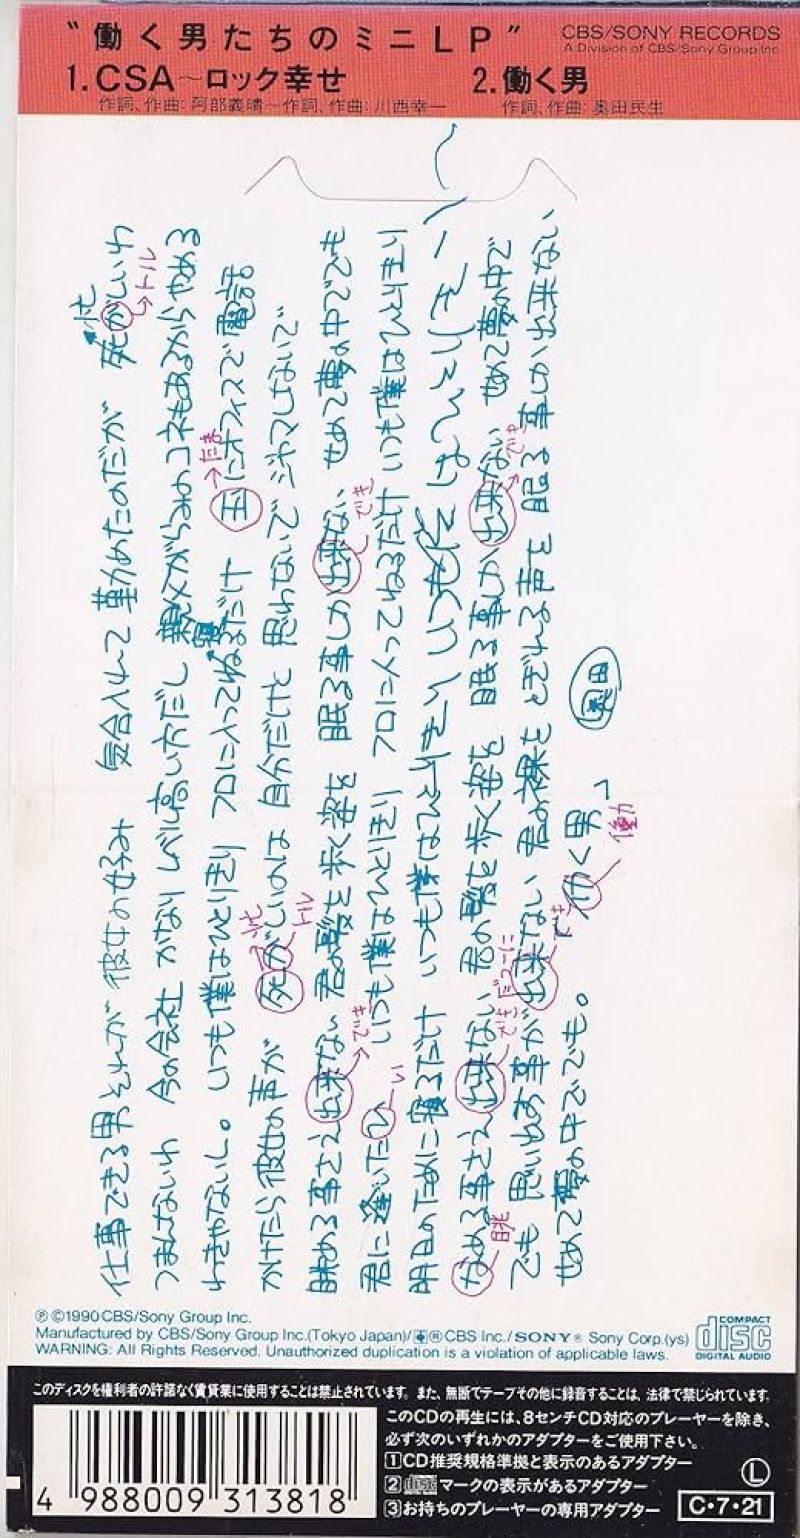 "働く男たちのミニLP"
CBS/SONY RECORDS
A Division of CBS/Sony Group Inc.
1.CSA〜ロック幸せ
作詞、作曲：阿部義晴〜作詞、作曲：川西幸一
2.働く男
作詞、作曲：奥田民生
仕事できる男 それが彼女の好み 気合入れて 勤めたのだが 死がしいわ
忙
トル
つまんないわ 今の会社 かなりレベル高い方だし 親父がらみのコネもあるからやめる
わきゃないし。 いつも僕はひとりきり フロに入ってねるだけ 玉にオフィスで電話
寝
たま
かけたら彼女の声が 死がしいのは 自分だけと 思わないで ジャマしないで
忙
トル
眺める事さえ出来ない 君の髪を 歩く姿を 眠る事しか出来ない せめて夢の中ででも
でき
でき
君に逢いたひ いつも僕はひとりきり フロに入ってねるだけ いつも僕はひとりきり
い
明日のために寝るだけ いつも僕は
ながめる事さえ出来ない 君の髪を 歩く姿を 眠る事しか出来ない せめて夢の中で
眺
でき
でき
でも 思い出す事が出来ない 君の裸を とぎれる声を 眠る事しか出来ない
でき
せめて夢の中ででも。 仂く男
働
奥田
℗©1990 CBS/Sony Group Inc.
Manufactured by CBS/Sony Group Inc.(Tokyo Japan)/®CBS Inc./SONY® Sony Corp.(ys)
WARNING: All Rights Reserved. Unauthorized duplication is a violation of applicable laws.
COMPACT
disc
DIGITAL AUDIO
このディスクを権利者の許諾なく賃貸業に使用することは禁止されています。また、無断でテープその他に録音することは、法律で禁じられています。
4 988009 313818
このCDの再生には、8センチCD対応のプレーヤーを除き、
必ず次のいずれかのアダプターをご使用下さい。
1 CD推奨規格準拠と表示のあるアダプター
2 disc マークの表示があるアダプター
3 お持ちのプレーヤーの専用アダプター
L
C・7・21